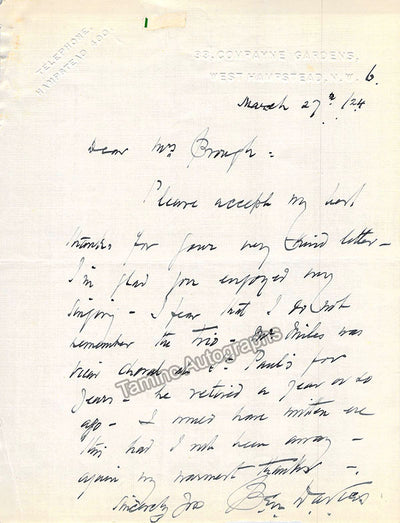 TELEPHONE.
HAMPSTEAD
33, COMPAYNE GARDENS,
WEST HAMPSTEAD, N.W. 6.
March 27th /24
Dear Mrs Brough =
Please accept my best
thanks for your very kind letter -
I'm glad you enjoyed my
singing - I fear that I do not
remember the trio - Miles was
vicar choral at St Paul's for
years - he retired a year or so
ago - I would have written ere
this had I not been away -
again my warmest thanks -
Sincerely yrs Ben Davies
Tamino Autographs